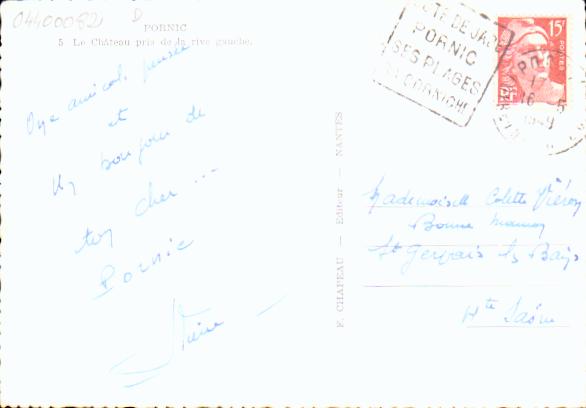 04400082 D
PORNIC
5 Le Château pris de la rive gauche.
amicale pensée
et
bonjour de
ton cher ...
Pornic
F. CHAPEAU — Editeur — NANTES
COTE DE JADE
PORNIC
SES PLAGES
SA CORNICHE
15F
POSTES
16 - 5
1949
Mademoiselle Colette
Bonne
St Gervais les Bains
Hte Savoie